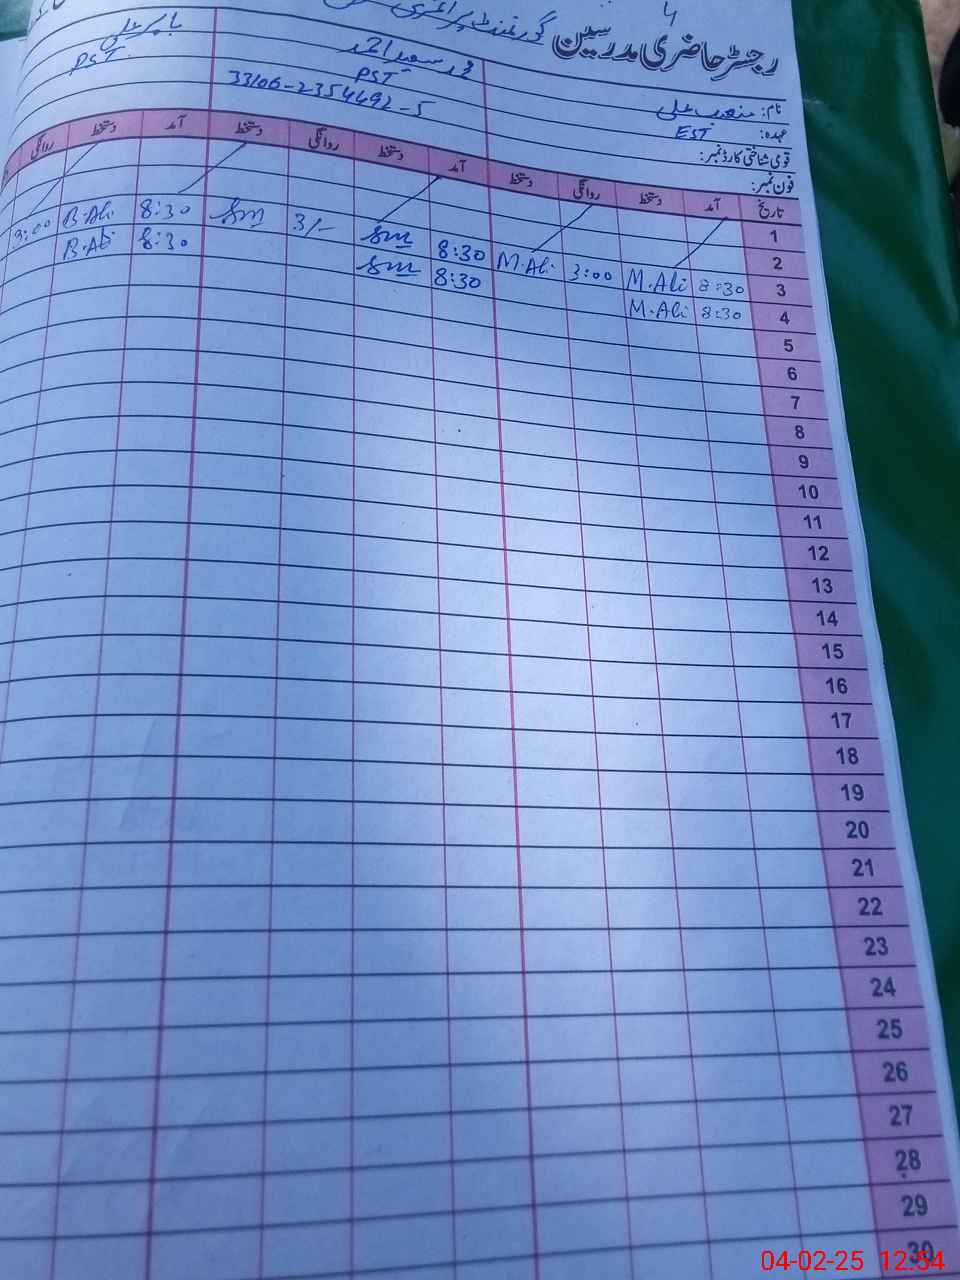 4
رجسٹر حاضری مدرسین گورنمنٹ پرائمری
نام: منصب علی محمد سعید احمد بابر علی
عہدہ: EST PST PST
قومی شناختی کارڈ نمبر: 33106-2354692-5
فون نمبر:
تاریخ آمد دستخط روانگی دستخط آمد دستخط روانگی دستخط آمد دستخط روانگی
1
2
3 8:30 M.Ali 3:00 M.Ali 8:30 Sm 3/- Sm 8:30 B.Ali 3:00
4 8:30 M.Ali 8:30 Sm 8:30 B.Ali
5
6
7
8
9
10
11
12
13
14
15
16
17
18
19
20
21
22
23
24
25
26
27
28
29
30
04-02-25 12:54